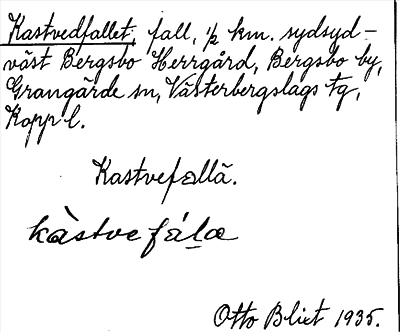 Kastvedfallet, fall, ½ km. sydsyd-
väst Bergsbo Herrgård, Bergsbo by,
Grangärde sn, Västerbergslags tg,
Kopp l.
Kastvefallä.
kàstvefála
Otto Blixt 1935.